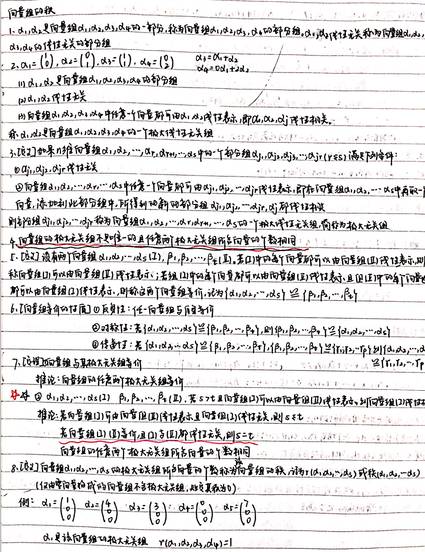 向量组的秩
1. α₁,α₂是向量组α₁,α₂,α₃,α₄的一部分,称为向量组α₁,α₂,α₃,α₄的部分组,α₁,α₂线性无关称为向量组α₁,α₂,
α₃,α₄的线性无关的部分组
2. α₁=(1 0), α₂=(0 1), α₃=(1 1), α₄=(0 2) α₃=α₁+α₂ α₄=0α₁+2α₂
(1) α₁,α₂是向量组α₁,α₂,α₃,α₄的部分组
(2) α₁,α₂线性无关
(3) 向量组α₁,α₂,α₃,α₄中任意一个向量都可由α₁,α₂线性表示,即α₁,α₂,αj线性相关.
称α₁,α₂是向量组α₁,α₂,α₃,α₄的一个极大线性无关组
3. [定义] 如果n维向量组α₁,α₂,…,αr,αr+₁,…,αs中的一个部分组αj₁,αj₂,αj₃,…αjr(r≤s)满足下列条件:
① αj₁,αj₂,…αjr线性无关
② 向量组α₁,α₂,…αr…αs中任意一个向量都可由αj₁,αj₂,…αjr线性表示,即在向量组α₁,α₂,…αs中再取一
向量,添加到此部分组中,所得到的新的部分组αj₁,αj₂,…αjr,αj都线性相关
则部分组αj₁,αj₂,…αjr称为向量组α₁,α₂,…,αr,αr+₁,…αs的一个极大线性无关组,简称为极大无关组
4. 向量组的极大无关组不是唯一的且任意两个极大无关组所含向量的个数相同
5. [定义] 设有两个向量组α₁,α₂,…αs(Ⅰ), β₁,β₂,…,βt(Ⅱ),若(Ⅰ)中的每个向量都可以由向量组(Ⅱ)线性表示,则
称向量组(Ⅰ)可以由向量组(Ⅱ)线性表示;若组(Ⅰ)中的每个向量都可以由向量组(Ⅱ)线性表示,且组(Ⅱ)中的每个向量也
都可以由向量组(Ⅰ)线性表示,则称这两个向量组等价,记为{α₁,α₂,…αs}≅{β₁,β₂,…βt}
6. [向量组等价的性质] ① 反身性:任一向量组与自身等价
② 对称性:若{α₁,α₂,…αs}≅{β₁,β₂,…βt},则{β₁,β₂,…βt}≅{α₁,α₂,…αs}
③ 传递性:若{α₁,α₂,…αs}≅{β₁,β₂,…βt},{β₁,β₂,…βt}≅{r₁,r₂,…rp}则{α₁,α₂,…
≅{r₁,r₂,…rp
7. [定理] 向量组与其极大无关组等价
推论:向量组的任意两个极大无关组等价
② α₁,α₂,…,αs(Ⅰ) β₁,β₂,…,βt(Ⅱ),若s>t且向量组(Ⅰ)可以由向量组(Ⅱ)线性表示,则向量组(Ⅰ)线性相
推论:若向量组(Ⅰ)可由向量组(Ⅱ)线性表示且向量组(Ⅰ)线性无关,则s≤t
若向量组(Ⅰ)(Ⅱ)等价,且(Ⅰ)与(Ⅱ)都线性无关,则s=t
向量组的任意两个极大无关组所含向量的个数相同
8. [定义] 向量组α₁,α₂,…αs的极大无关组所含向量的个数称为向量组的秩,记为r(α₁,α₂,…αs)或秩(α₁,α₂,…αs)
(仅由零向量组成的向量组不含极大无关组,故其秩为0)
例:
α₁是该向量组的极大无关组 r(α₁,α₂,α₃,α₄)=1